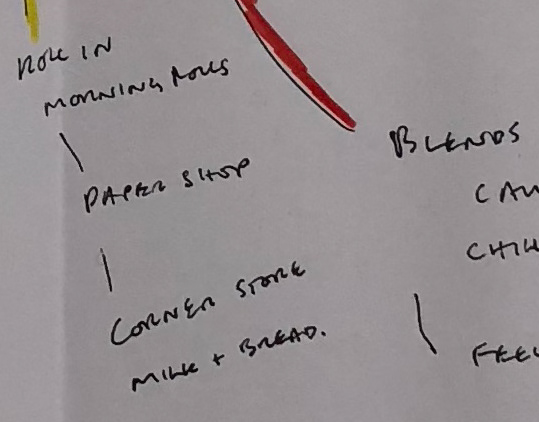 ROLL IN
MORNING ROLLS
PAPER SHOP
CORNER STORE
MILK + BREAD.
BLENDS